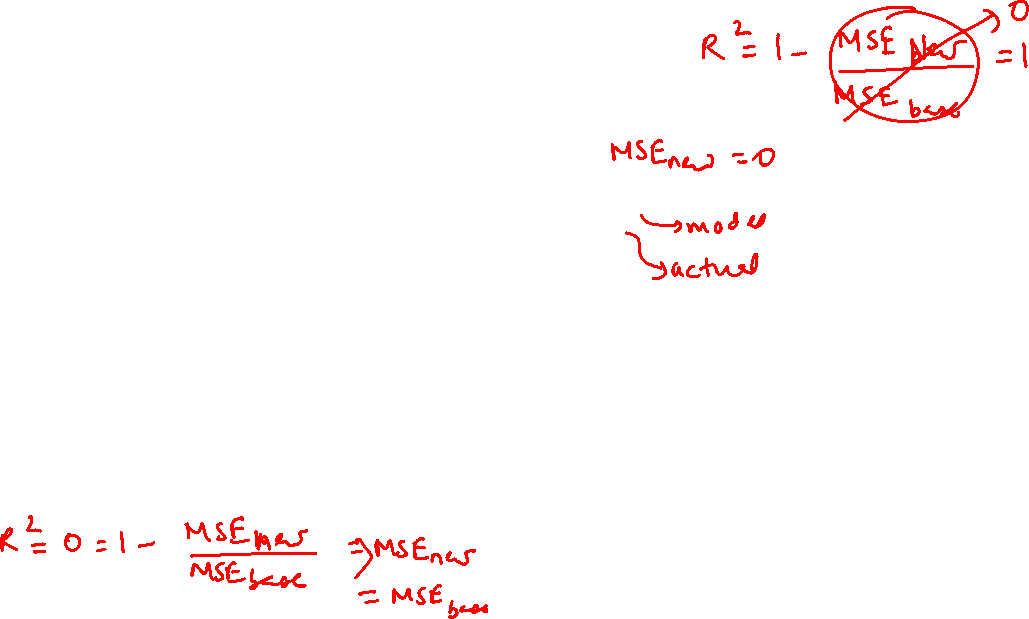 R² = 1 - MSE New / MSE base = 1 → 0
MSE new = 0
→ model
→ actual
R² = 0 = 1 - MSE new / MSE base ⇒ MSE new
= MSE base